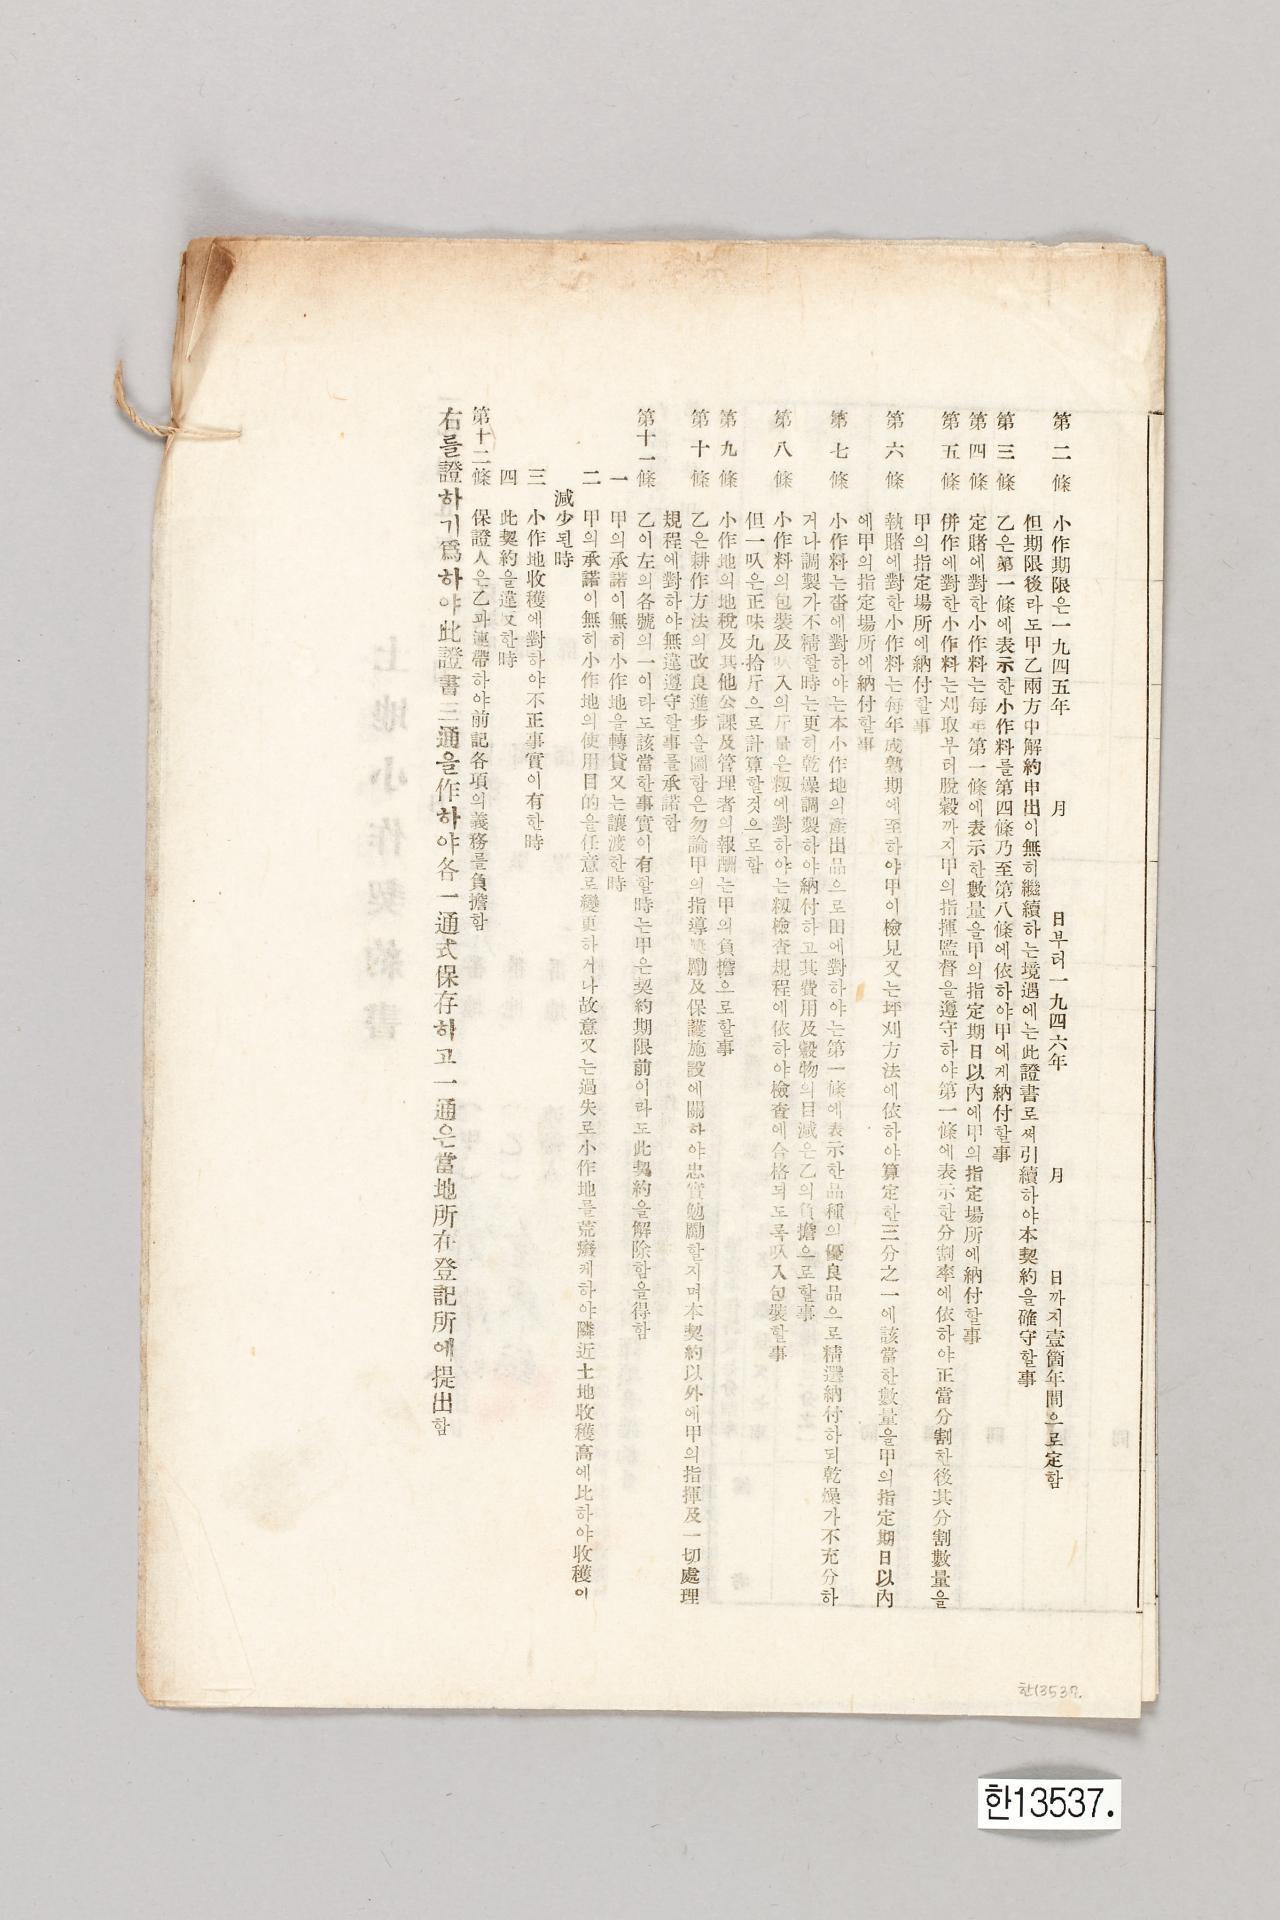 第二條 小作期限은一九四五年 月 日부터一九四六年 月 日까지壹箇年間으로定함
但期限後라도甲乙兩方中解約申出이無히繼續하는境遇에는此證書로써引續하야本契約을確守할事
第三條 乙은第一條에表示한小作料를第四條乃至第八條에依하야甲에게納付할事
第四條 定賭에對한小作料는每年第一條에表示한數量을甲의指定期日以內에甲의指定場所에納付할事
第五條 倂作에對한小作料는刈取부터脫穀까지甲의指揮監督을遵守하야第一條에表示한分割率에依하야正當分割한後其分割數量을
甲의指定場所에納付할事
第六條 執賭에對한小作料는每年成熟期에至하야甲이檢見又는坪刈方法에依하야算定한三分之一에該當한數量을甲의指定期日以內
에甲의指定場所에納付할事
第七條 小作料는畓에對하야는本小作地의產出品으로田에對하야는第一條에表示한品種의優良品으로精選納付하되乾燥가不充分하
거나調製가不精할時는更히乾燥調製하야納付하고其費用及穀物의目減은乙의負擔으로할事
第八條 小作料의包裝及叺入의斤量은籾에對하야는籾檢査規程에依하야檢査에合格되도록叺入包裝할事
但一叺은正味九拾斤으로計算할것으로함
第九條 小作地의地稅及其他公課及管理者의報酬는甲의負擔으로할事
第十條 乙은耕作方法의改良進步을圖함은勿論甲의指導奬勵及保護施設에關하야忠實勉勵할지며本契約以外에甲의指揮及一切處理
規程에對하야無違遵守할事를承諾함
第十一條 乙이左의各號의一이라도該當한事實이有할時는甲은契約期限前이라도此契約을解除함을得함
一 甲의承諾이無히小作地을轉貸又는讓渡한時
二 甲의承諾이無히小作地의使用目的을任意로變更하거나故意又는過失로小作地를荒廢케하야隣近土地收穫高에比하야收穫이
減少된時
三 小作地收穫에對하야不正事實이有한時
四 此契約을違反한時
第十二條 保證人은乙과連帶하야前記各項의義務를負擔함
右를證하기爲하야此證書三通을作하야各一通式保存하고一通은當地所在登記所에提出함
한13537.
한13537.